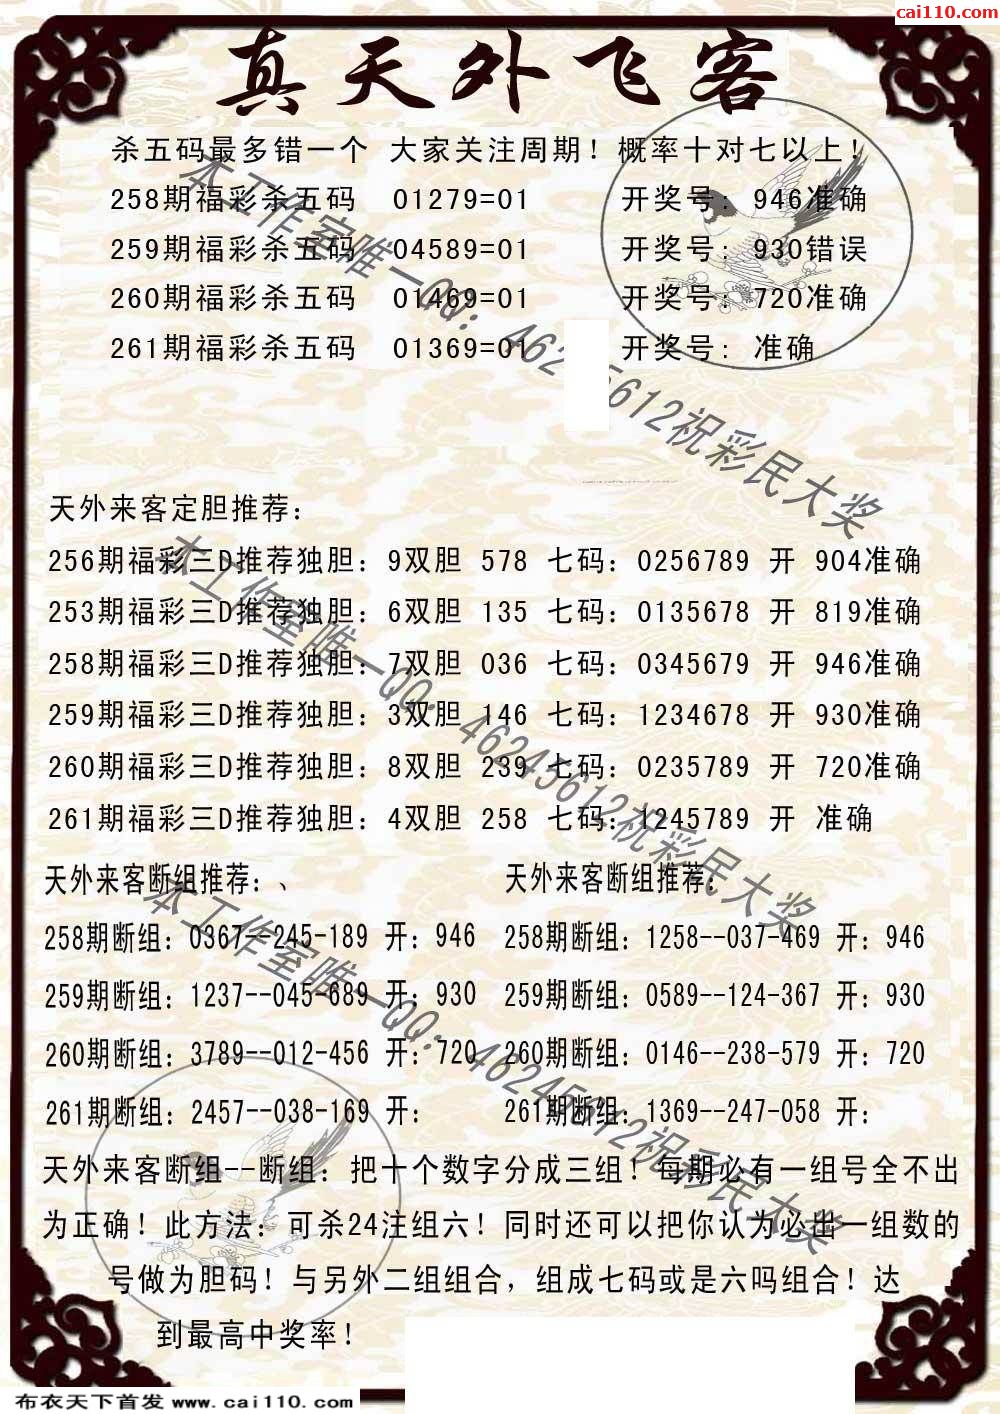 cai110.com
真天外飞客
杀五码最多错一个 大家关注周期！概率十对七以上！
258期福彩杀五码 01279=01 开奖号：946准确
259期福彩杀五码 04589=01 开奖号：930错误
260期福彩杀五码 01469=01 开奖号：720准确
261期福彩杀五码 01369=01 开奖号：准确
天外来客定胆推荐：
256期福彩三D推荐独胆：9双胆 578 七码：0256789 开 904准确
253期福彩三D推荐独胆：6双胆 135 七码：0135678 开 819准确
258期福彩三D推荐独胆：7双胆 036 七码：0345679 开 946准确
259期福彩三D推荐独胆：3双胆 146 七码：1234678 开 930准确
260期福彩三D推荐独胆：8双胆 239 七码：0235789 开 720准确
261期福彩三D推荐独胆：4双胆 258 七码：1245789 开 准确
天外来客断组推荐：、 天外来客断组推荐：
258期断组：0367--245-189 开：946 258期断组：1258--037-469 开：946
259期断组：1237--045-689 开：930 259期断组：0589--124-367 开：930
260期断组：3789--012-456 开：720 260期断组：0146--238-579 开：720
261期断组：2457--038-169 开： 261期断组：1369--247-058 开：
天外来客断组--断组：把十个数字分成三组！每期必有一组号全不出
为正确！此方法：可杀24注组六！同时还可以把你认为必出一组数的
号做为胆码！与另外二组组合，组成七码或是六吗组合！达
到最高中奖率！
本工作室唯一QQ：46245612祝彩民大奖
本工作室唯一QQ：46245612祝彩民大奖
本工作室唯一QQ：46245612祝彩民大奖
布衣天下首发 www.cai110.com